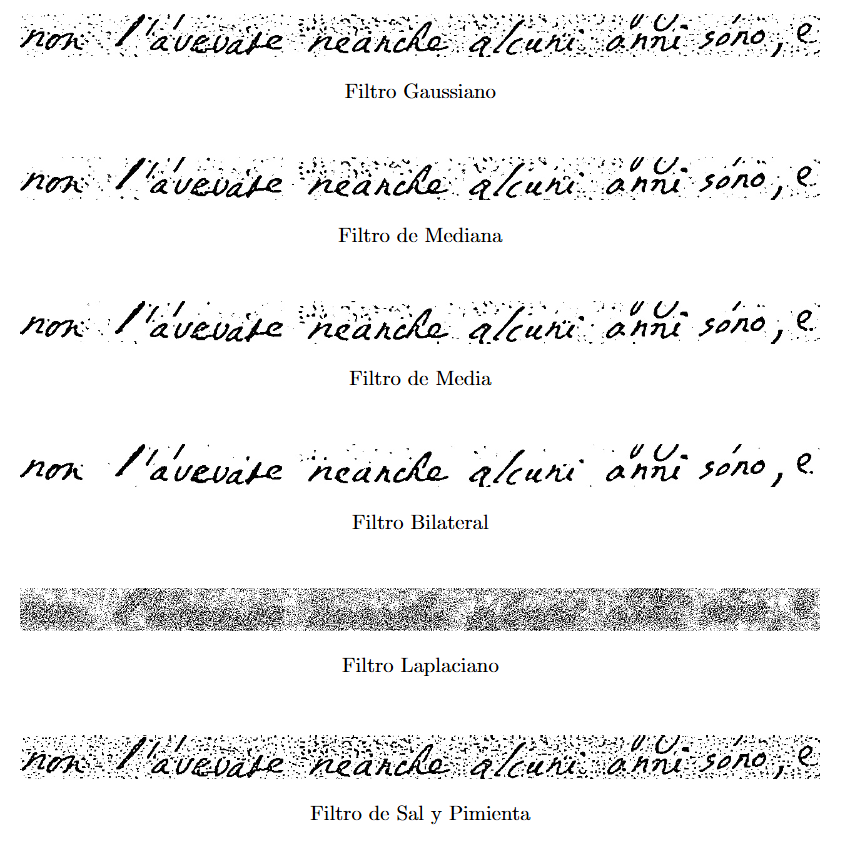 non l'avevate neanche alcuni anni sono, e
Filtro Gaussiano
non l'avevate neanche alcuni anni sono, e
Filtro de Mediana
non l'avevate neanche alcuni anni sono, e
Filtro de Media
non l'avevate neanche alcuni anni sono, e
Filtro Bilateral
Filtro Laplaciano
non l'avevate neanche alcuni anni sono, e
Filtro de Sal y Pimienta